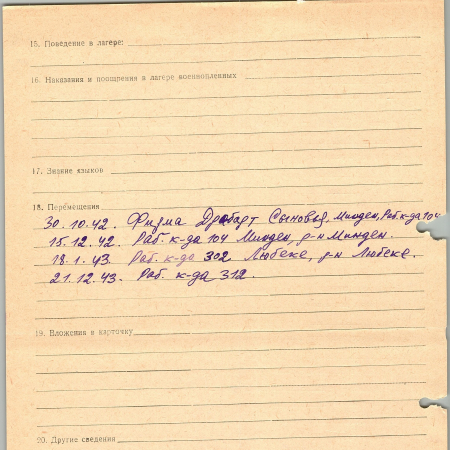 15. Поведение в лагере:
16. Наказания и поощрения в лагере военнопленных
17. Знание языков
18. Перемещения
30.10.42. Фирма Дробарт Сыновья, Минден, Раб. к-да 104
15.12.42. Раб. к-да 104 Минден, р-н Минден.
18.1.43. Раб. к-да 302 Любеке, р-н Любеке.
21.12.43. Раб. к-да 312.
19. Вложения в карточку
20. Другие сведения